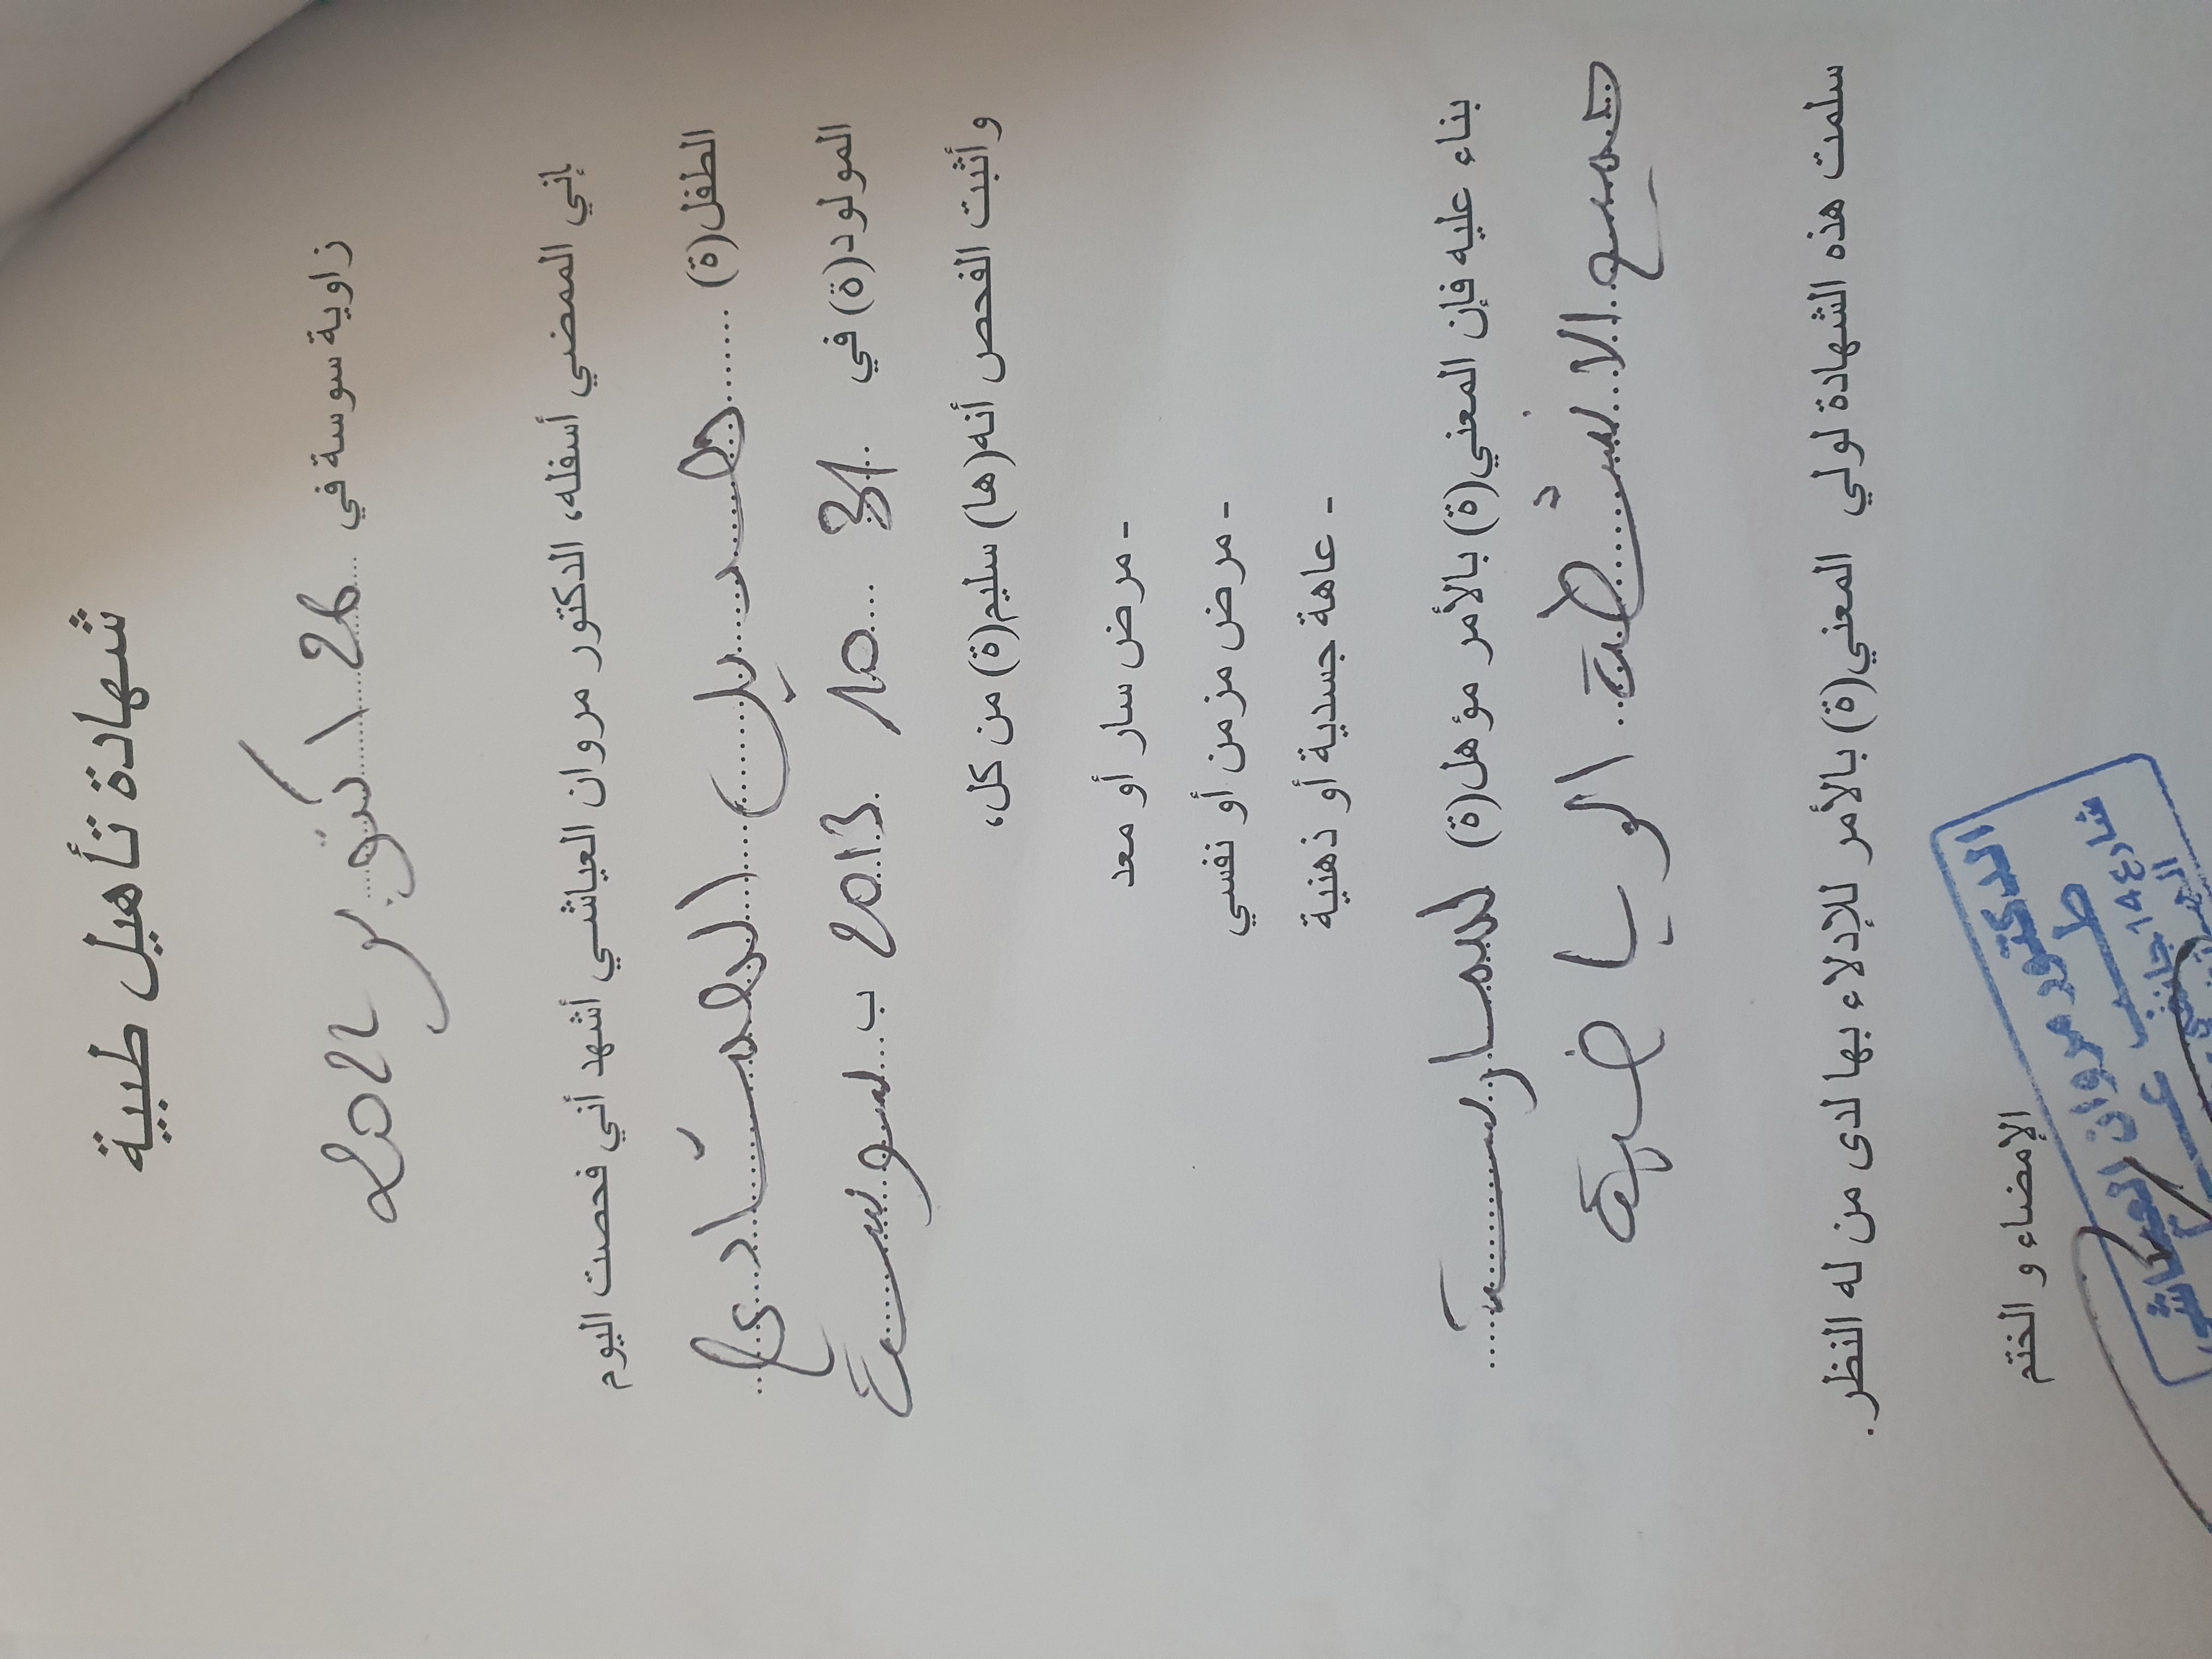 شهادة تأهيل طبية
زاوية سوسة في 26 اكتوبر 2022
إني الممضي أسفله، الدكتور مروان العياشي أشهد أني فحصت اليوم
الطفل(ة) هديل
المولود(ة) في 31 10 2013 ب سوسة
و أثبت الفحص أنه(ها) سليم(ة) من كل،
- مرض سار أو معد
- مرض مزمن أو نفسي
- عاهة جسدية أو ذهنية
بناء عليه فإن المعني(ة) بالأمر مؤهل(ة) لممارسة
جميع الانشطة الرياضية
سلمت هذه الشهادة لولي المعني(ة) بالأمر للإدلاء بها لدى من له النظر.
الإمضاء و الختم
الدكتور مروان العياشي
طب
شارع 14 جانفي